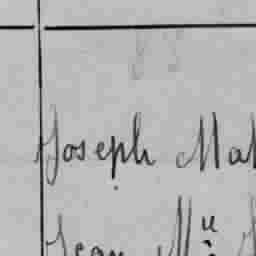 Joseph Mat
Jean Mu